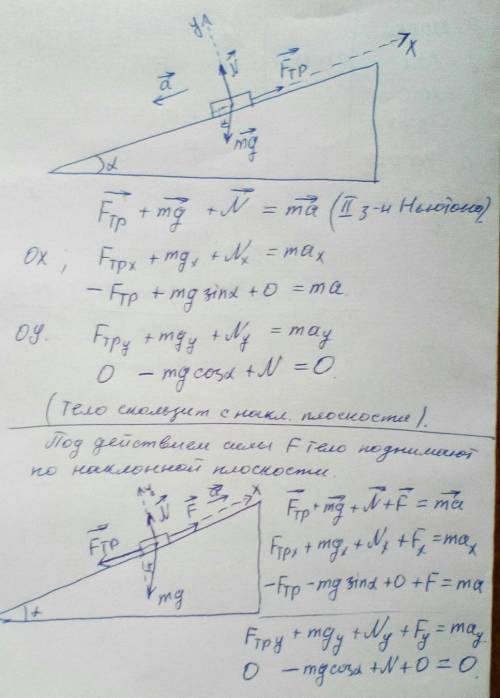 y
N⃗
F⃗тр
X
a⃗
mg⃗
α
F⃗тр + mg⃗ + N⃗ = ma⃗ (II з-н Ньютона)
OX; Fтрx + mgx + Nx = max
-Fтр + mg sinα + 0 = ma
Oy. Fтрy + mgy + Ny = may
0 - mg cosα + N = 0.
(Тело скользит с накл. плоскости).
Под действием силы F тело поднимают
по наклонной плоскости.
y
N⃗
F⃗
a⃗
x
F⃗тр
mg
α
F⃗тр + mg⃗ + N⃗ + F⃗ = ma⃗
Fтрx + mgx + Nx + Fx = max
-Fтр - mg sinα + 0 + F = ma
Fтрy + mgy + Ny + Fy = may
0 - mg cosα + N + 0 = 0.